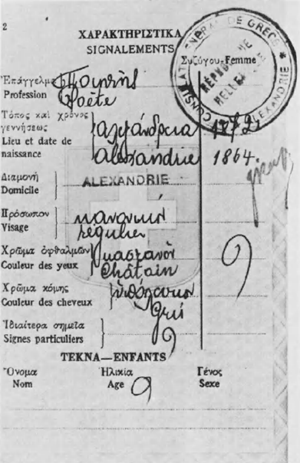 2
ΧΑΡΑΚΤΗΡΙΣΤΙΚΑ
SIGNALEMENTS
Συζύγου-Femme
CONSULAT GENERAL DE GRECE
ALEXANDRIE
Ἐπάγγελμα Ποιητής
Profession Poète
Τόπος καὶ χρόνος
γεννήσεως Ἀλεξάνδρεια
Lieu et date de
naissance Alexandrie 1864
Διαμονή
Domicile ALEXANDRIE
Πρόσωπον κανονικόν
Visage régulier
Χρῶμα ὀφθαλμῶν καστανοί
Couleur des yeux Châtain
Χρῶμα κόμης
Couleur des cheveux Gris
Ἰδιαίτερα σημεῖα
Signes particuliers
ΤΕΚΝΑ—ENFANTS
Ὄνομα Ἡλικία Γένος
Nom Age Sexe